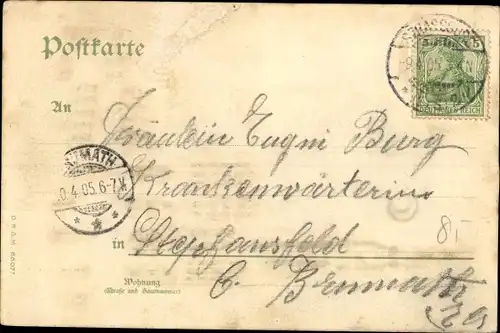 Postkarte
An
Fräulein Eugni Burg
Krankenwärterin
in Stephansfeld
Wohnung
(Straße und Hausnummer)
C. Brumath
5
DEUTSCHES REICH
UMATH
0.4.05.6-7.V
81-